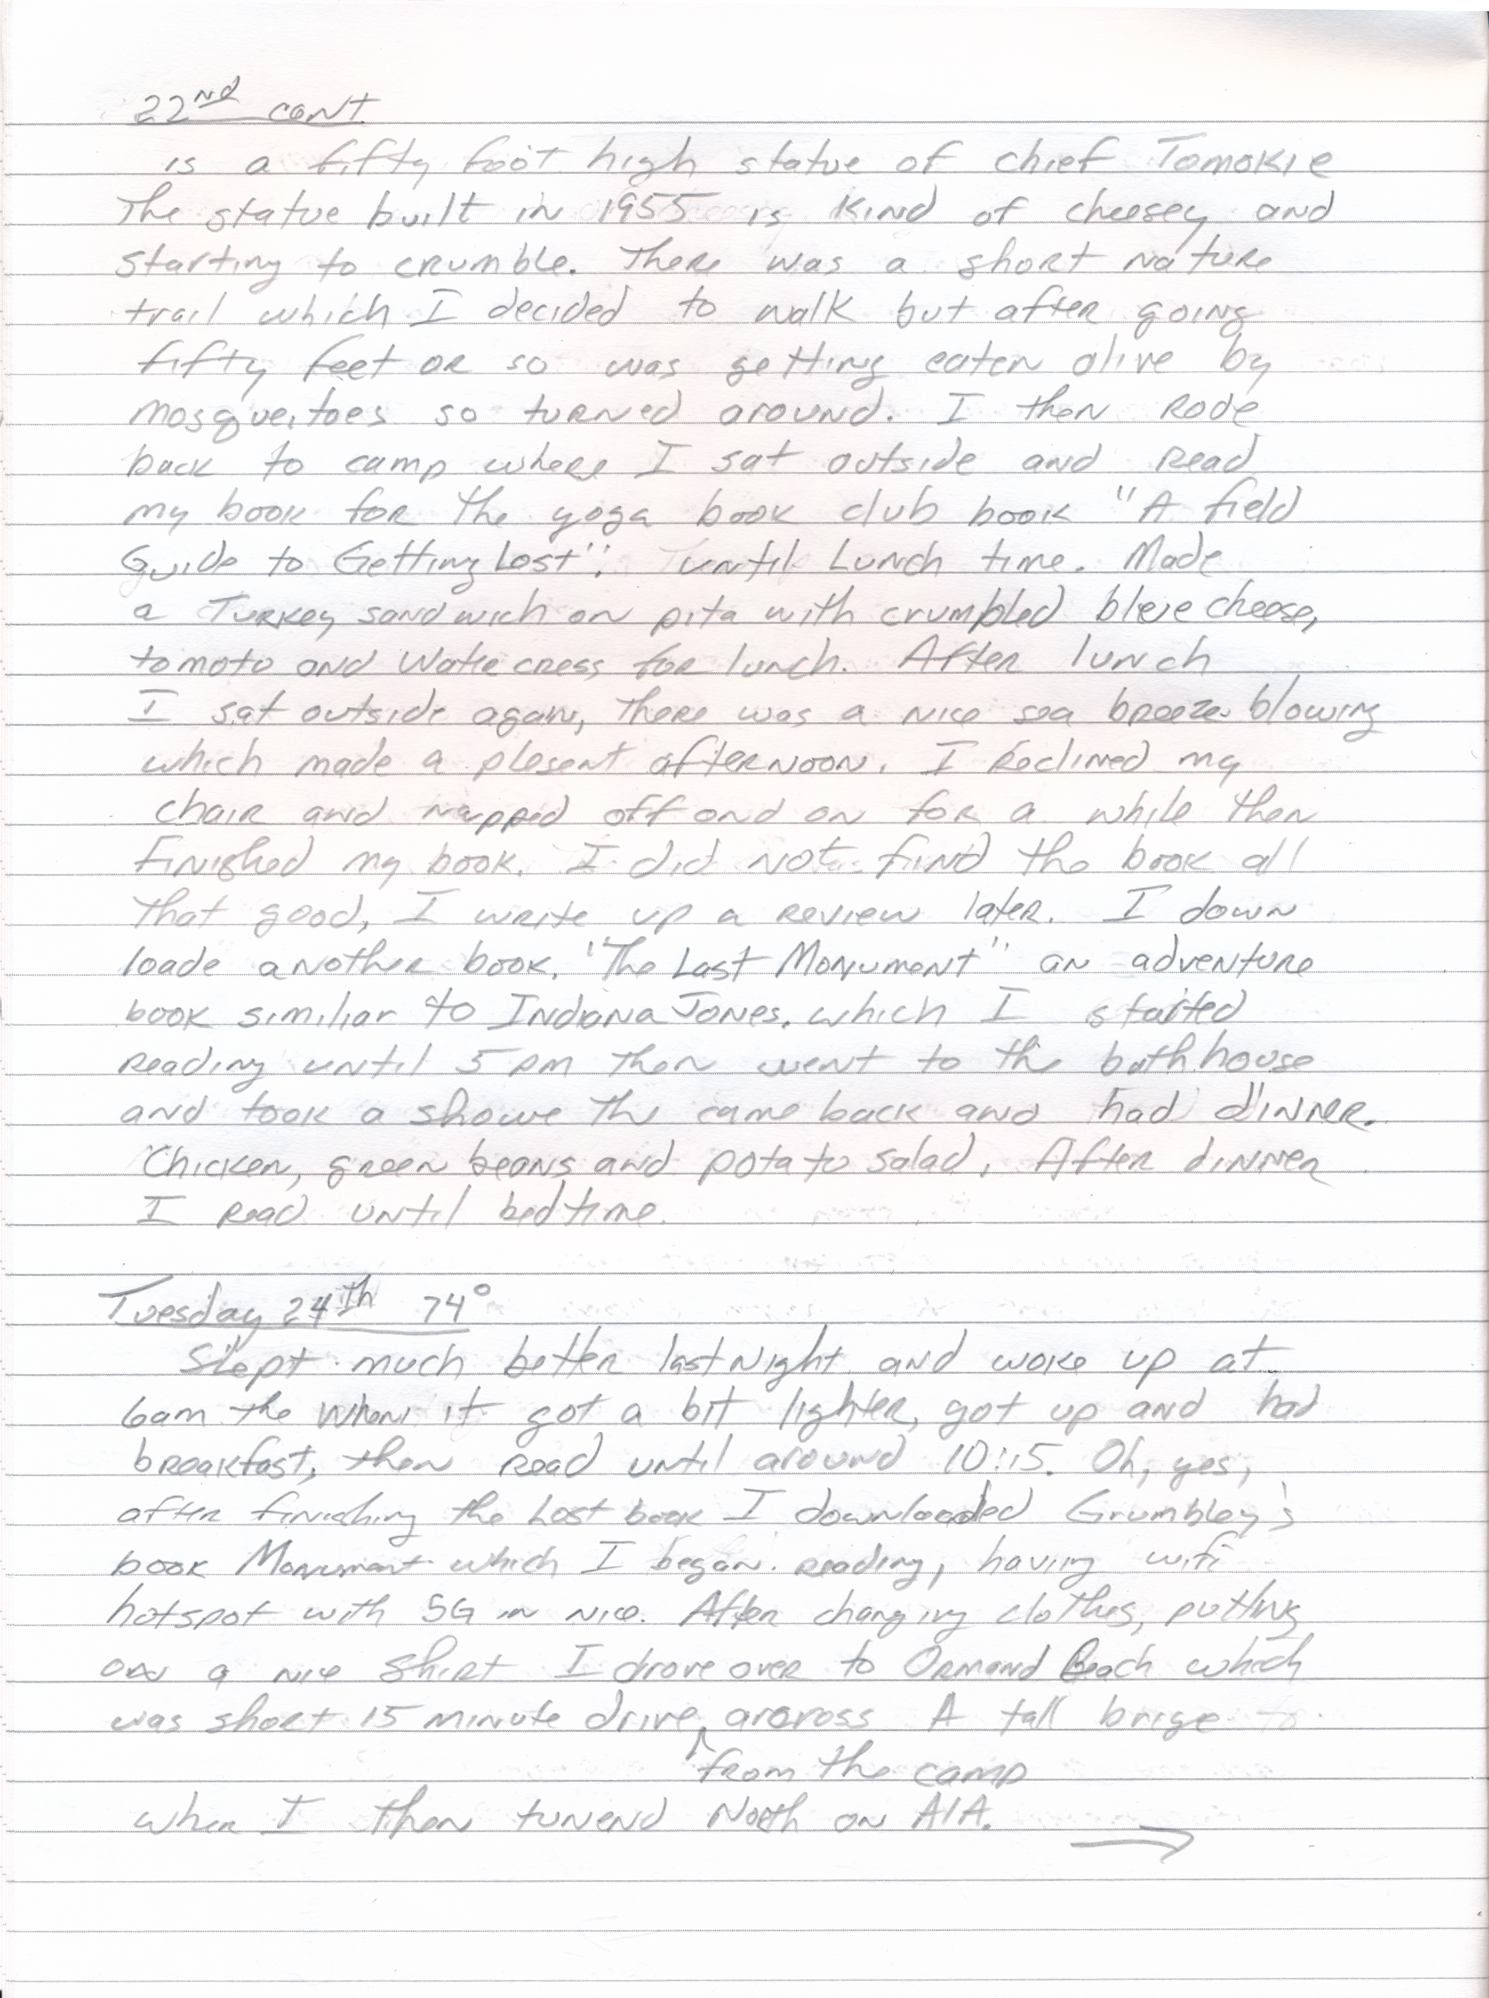 22nd cont.
is a fifty foot high statue of chief Tomokie
The statue built in 1955 is kind of cheesey and
starting to crumble. There was a short nature
trail which I decided to walk but after going
fifty feet or so was getting eaten alive by
mosqueitoes so turned around. I then rode
back to camp where I sat outside and read
my book for the yoga book club book "A field
Guide to Getting Lost". until Lunch time. Made
a Turkey sandwich on pita with crumbled bleue cheese,
tomoto and Watte cress for lunch. After lunch
I sat outside again, there was a nice sea breeze blowing
which made a plesent afternoon. I reclined my
chair and napped off and on for a while then
finished my book. I did not find the book all
that good, I write up a review later. I down
loade another book, "The Last Monument" an adventure
book similiar to Indiana Jones. which I started
reading until 5 pm then went to the bathhouse
and took a showe the came back and had dinner.
Chicken, green beans and potato salad. After dinner
I read until bedtime.
Tuesday 24th 74°
Slept much better last night and woke up at
6am the when it got a bit lighter, got up and had
breakfast, then read until around 10:15. Oh, yes,
after finishing the Lost book I downloaded Grumbley's
book Monument which I began reading, having wifi
hotspot with 5G in nice. After changing clothes, putting
on a nice shirt I drove over to Ormand Beach which
was short 15 minute drive, arcross A tall brige
from the camp
when I then tunend North on A1A.